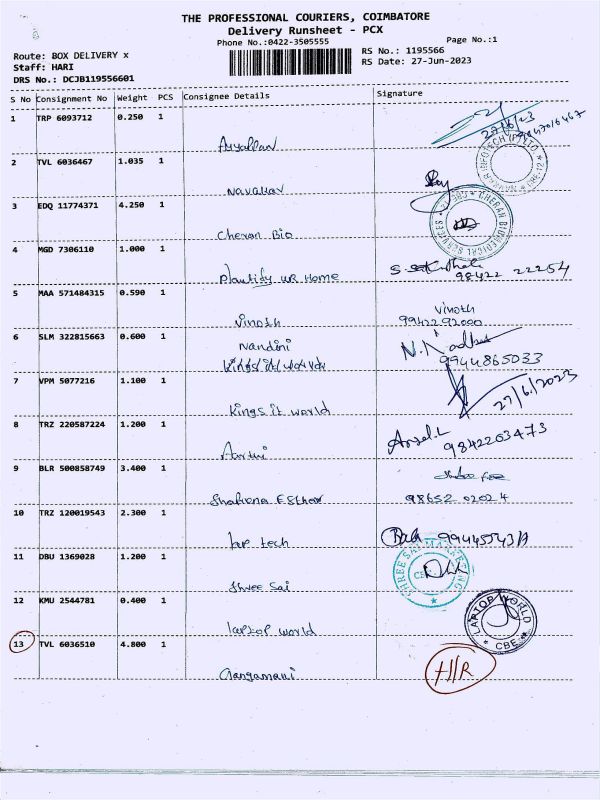 THE PROFESSIONAL COURIERS, COIMBATORE
Delivery Runsheet - PCX
Phone No.:0422-3505555
Page No.:1
Route: BOX DELIVERY x
RS No.: 1195566
Staff: HARI
RS Date: 27-Jun-2023
DRS No.: DCJB119556601
S No Consignment No Weight PCS Consignee Details Signature
1 TRP 6093712 0.250 1
27/6/23
2 TVL 6036467 1.035 1
3 EDQ 11774371 4.250 1
Cheran Bio
4 MGD 7306110 1.000 1
Plantify ur Home
98422 22254
5 MAA 571484315 0.590 1
Vinoth Vinoth
9942292000
6 SLM 322815663 0.600 1
Nandini
9944865033
7 VPM 5077216 1.100 1
Kings it world 27/6/2023
8 TRZ 220587224 1.200 1
9842203473
9 BLR 500858749 3.400 1
98652 02024
10 TRZ 120019543 2.300 1
lap tech
11 DBU 1369028 1.200 1
Shree Sai
12 KMU 2544781 0.400 1
laptop world
LAPTOP WORLD
CBE
13 TVL 6036510 4.800 1
Gangamani